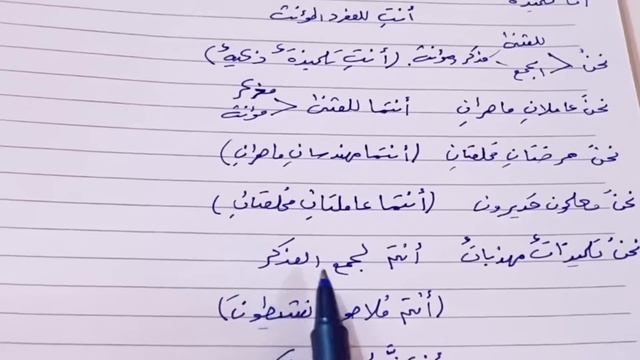 تلميذة
أنتِ للمفرد المؤنث
للمثنى
نحنُ < الجمع > مذكر ومؤنث. (أنتِ تلميذةٌ ذكيةٌ)
مذكر
نحنُ عاملانِ ماهرانِ أنتما للمثنى < مؤنث
نحنُ ممرضتانِ مخلصتانِ (أنتما مهندسانِ ماهرانِ)
نحنُ معلمون جديرون (أنتما عاملتانِ مخلصتانِ)
نحنُ تلميذاتٌ مهذباتٌ أنتم لجمع المذكر
(أنتم)